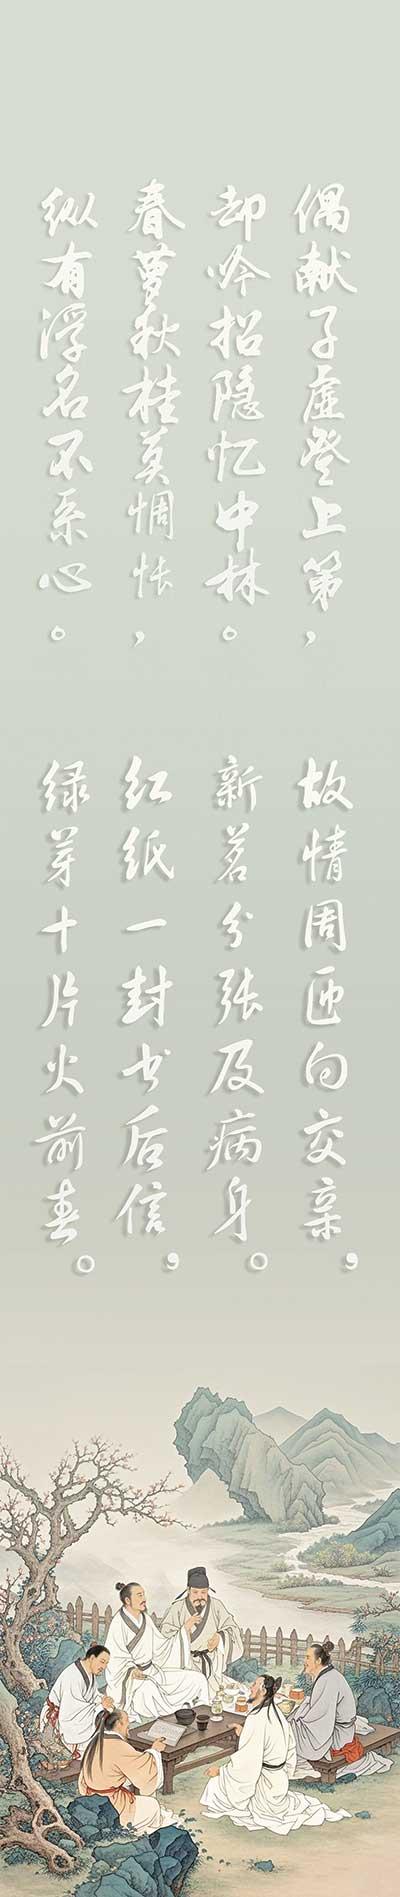 偶献子虚登上第，
却吟招隐忆中林。
春萝秋桂莫惆怅，
纵有浮名不系心。
故情周匝向交亲，
新茗分张及病身。
红纸一封书后信，
绿芽十片火前春。